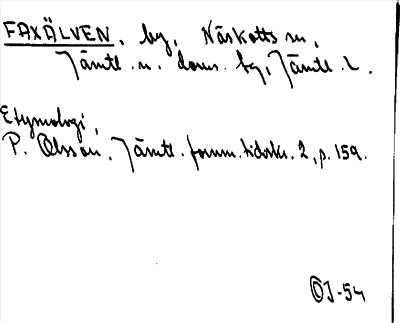 FAXÄLVEN, by, Näskotts sn,
Jämtl. n. doms. bg, Jämtl. L.
Etymologi,
P. Olsson, Jämtl. fornm. tidskr. 2, p. 159.
OJ-54